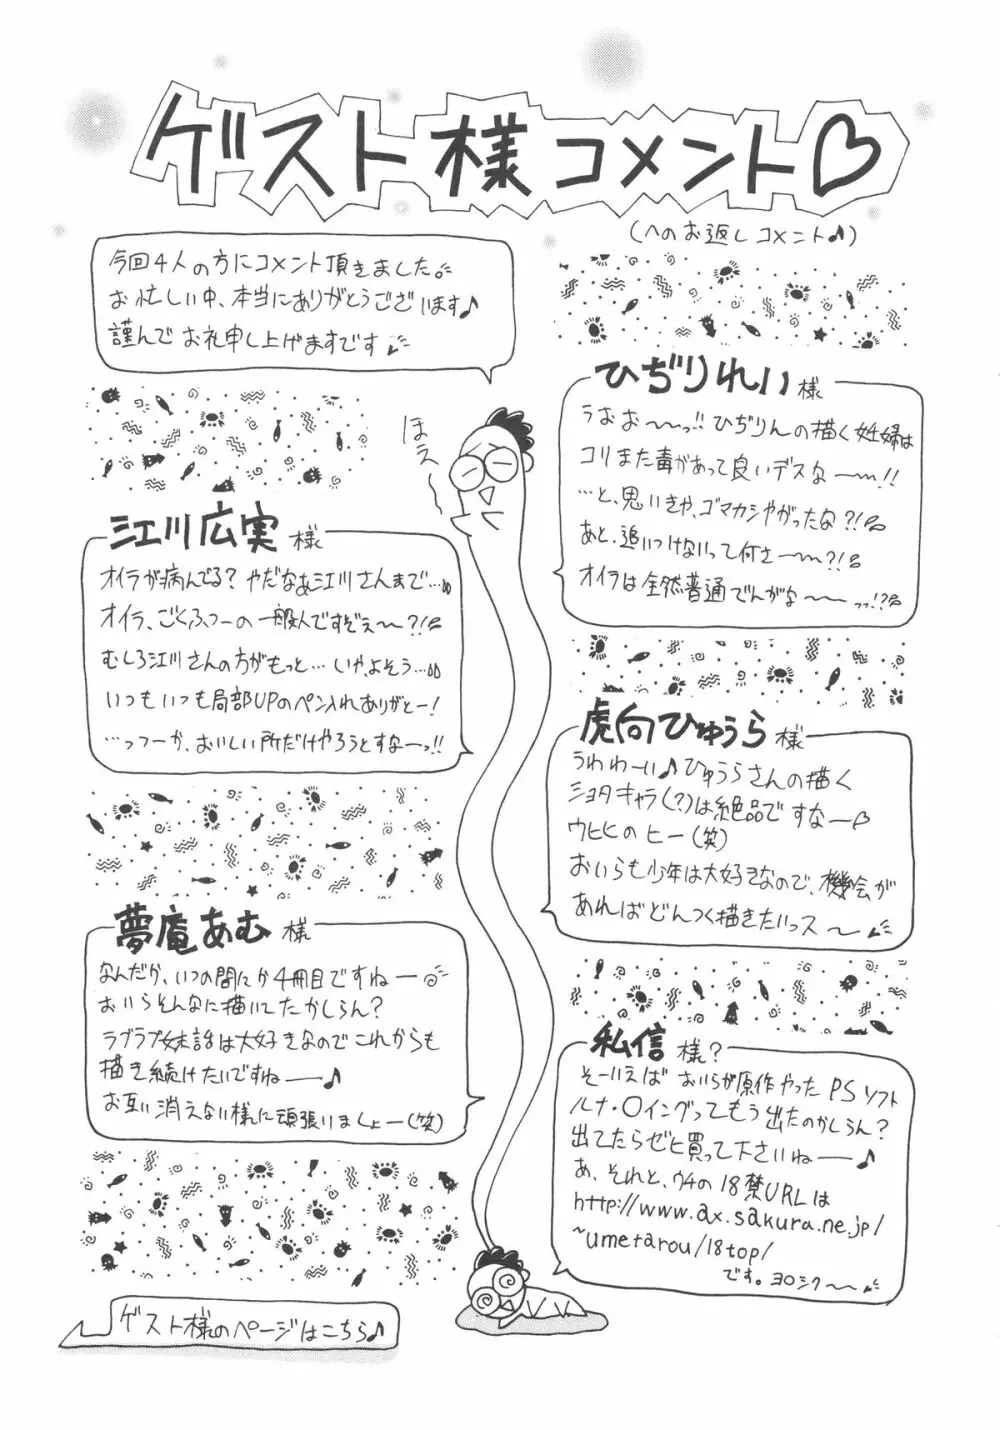 ゲスト様コメント♡
(へのお返しコメント♪)
今回4人の方にコメント頂きました。
お忙しい中、本当にありがとうございます♪
謹んでお礼申し上げますです
ほえ〜
ひぢりれい様
うおお〜〜っ!!ひぢりんの描く妊婦は
コリまた毒があって良いデスなー〜!!
…と、思いきや、ゴマカシやがったな?!
あと、追いつけないって何さー〜?!
オイラは全然普通でんがな〜〜っっ!?
江川広実様
オイラが病んでる?やだなぁ江川さんまで…
オイラ、ごくふつーの一般人ですぞぇ〜?!
むしろ江川さんの方がもっと…いやよそう…
いつもいつも局部UPのペン入れありがとー!
…っつーか、おいしい所だけやろうとすなーっ!!
虎向ひゅうら様
うわわーい♪ひゅうらさんの描く
ショタキャラ(?)は絶品ですなー♡
ウヒヒのヒー(笑)
おいらも少年は大好きなので、機会が
あればどんつく描きたいっス〜
夢庵あむ様
なんだか、いつの間にか4冊目ですねー
おいらそんなに描いてたかしらん?
ラブラブ妹話は大好きなのでこれからも
描き続けたいですねー♪
お互い消えない様に頑張いましょー(笑)
私信様?
そーいえばおいらが原作やったPSソフト
ルナ・〇イングってもう出たのかしらん?
出てたらぜヒ買って下さいねー♪
あ、それと、ウチの18禁URLは
http://www.ax.sakura.ne.jp/
~umetarou/18top/
です。ヨロシク〜
ゲスト様のページはこちら♪